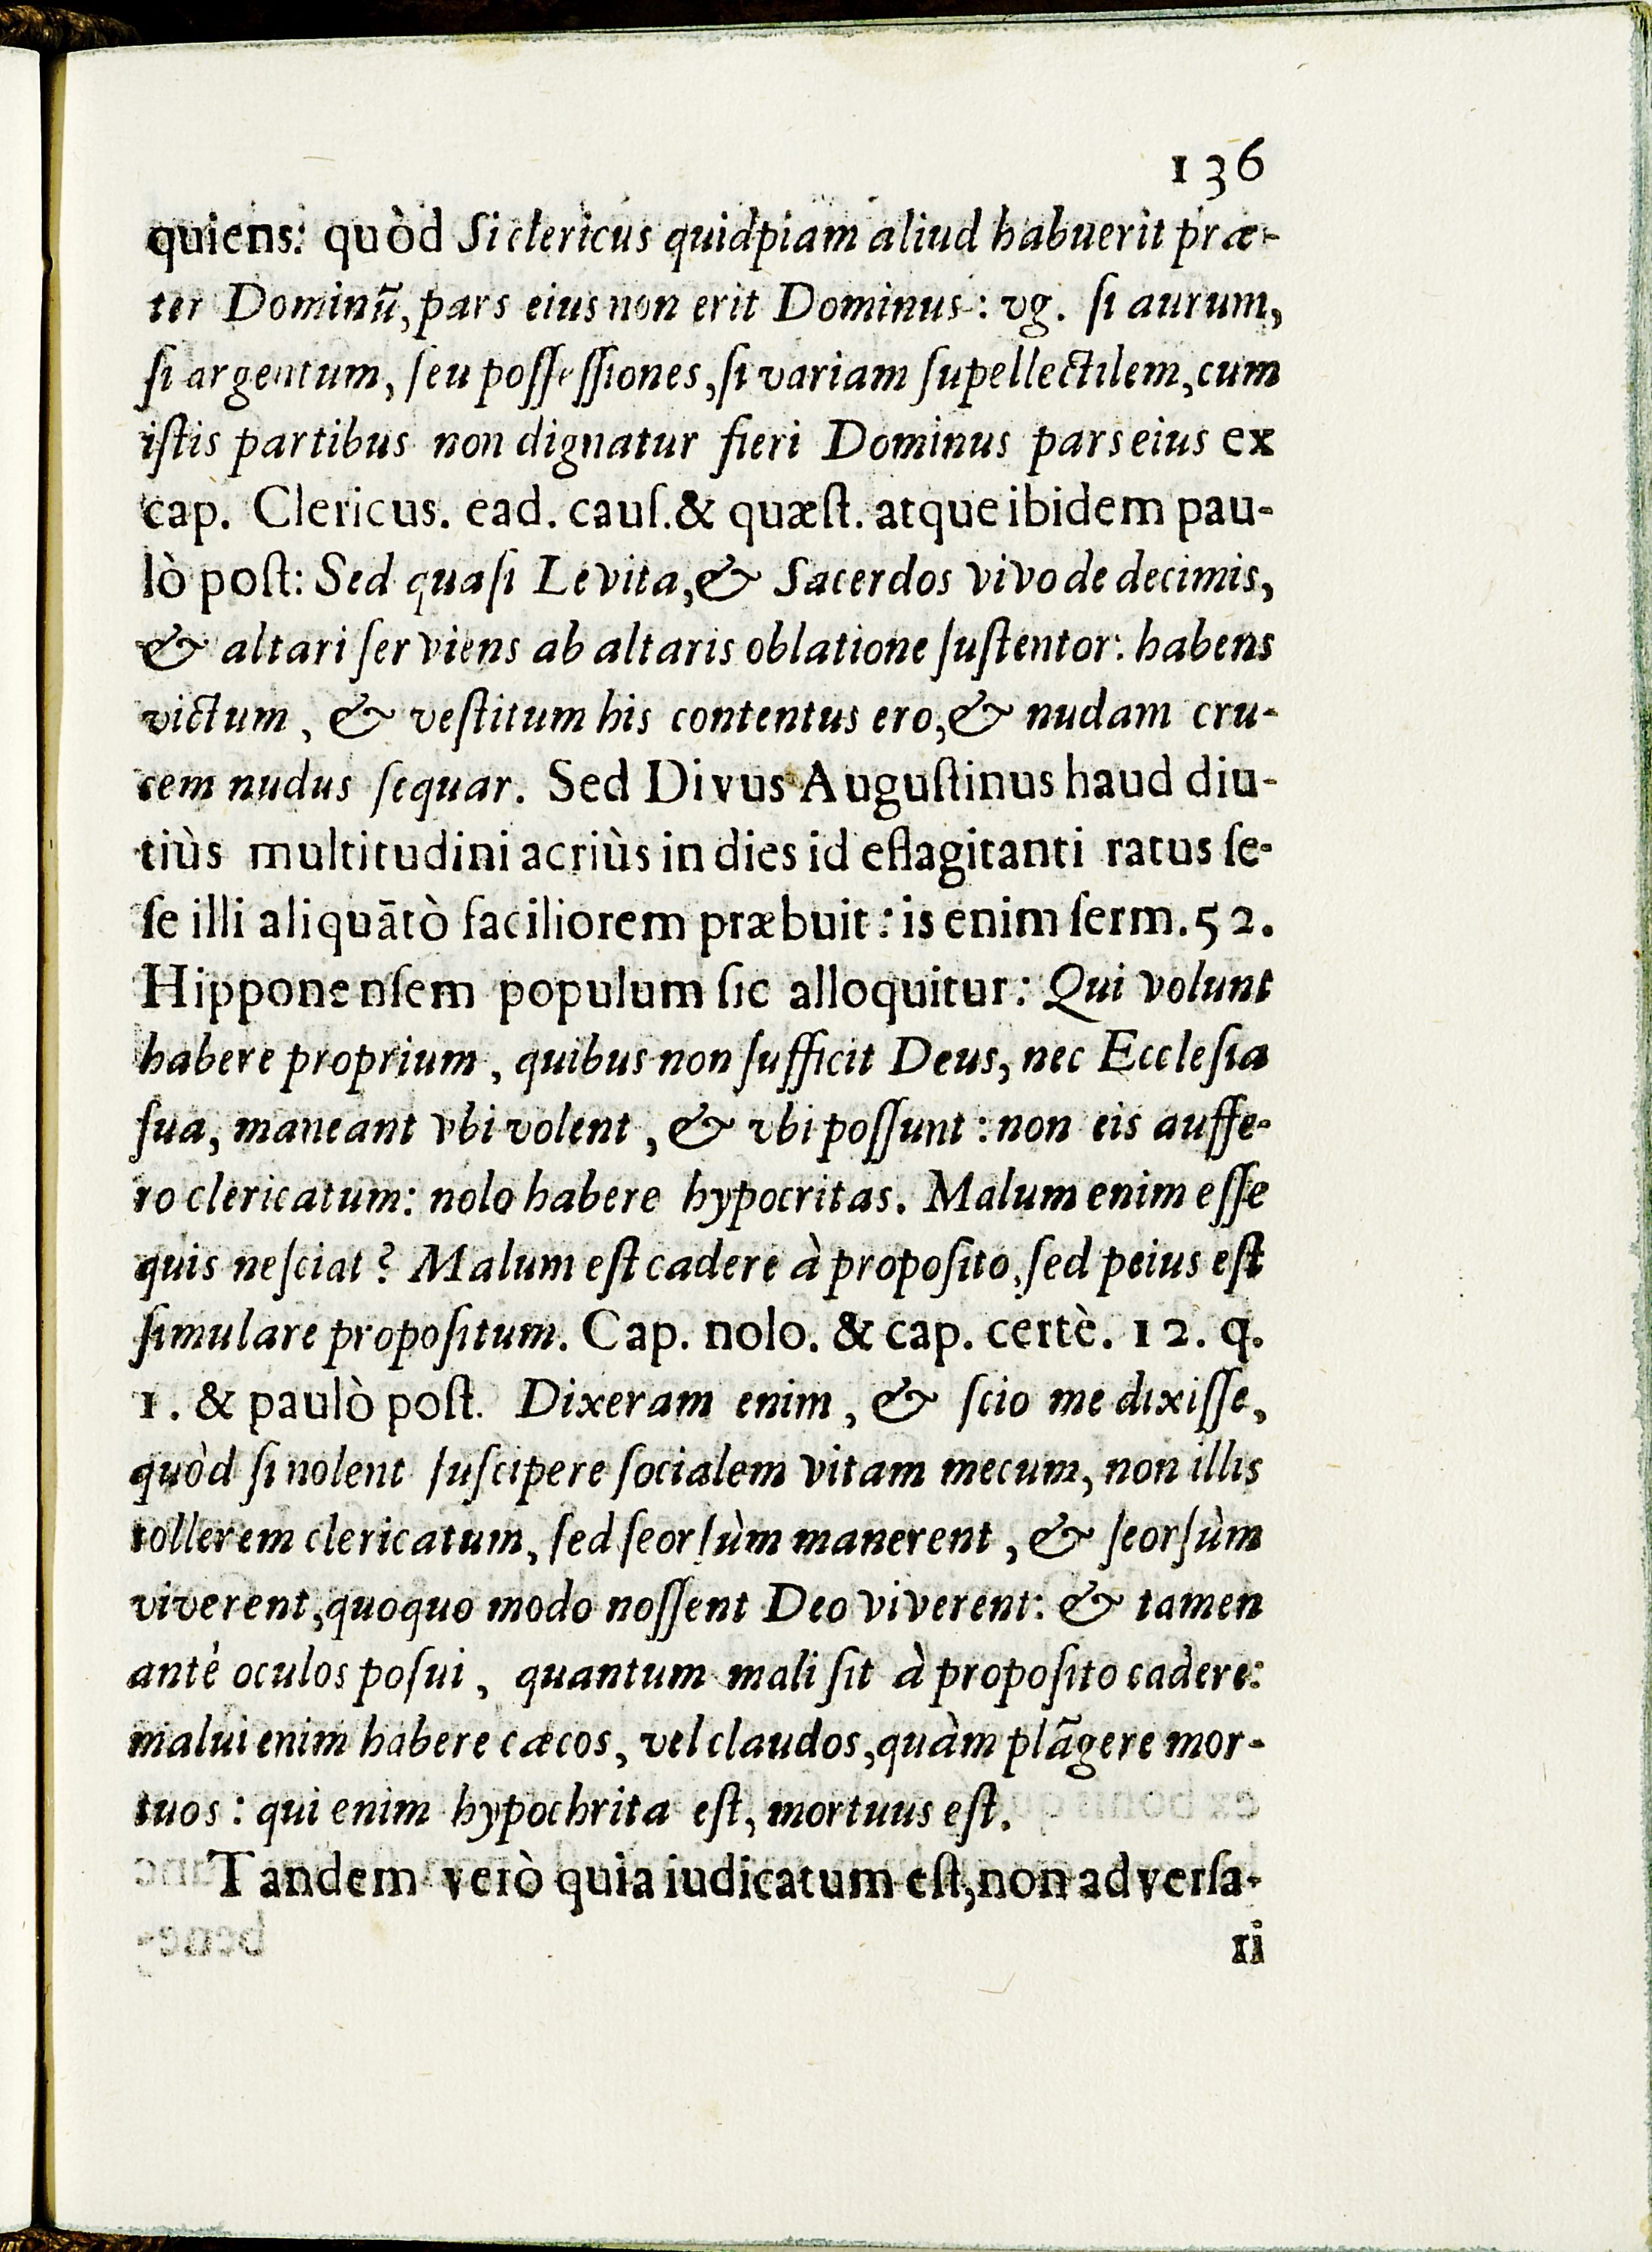 136
quiens: quòd Si clericus quidpiam aliud habuerit præ-
ter Dominū, pars eius non erit Dominus: vg. ſi aurum,
ſi argentum, ſeu poſſeſſiones, ſi variam ſupellectilem, cum
iſtis partibus non dignatur fieri Dominus pars eius ex
cap. Clericus. ead. cauſ. & quæſt. atque ibidem pau-
lò poſt: Sed quaſi Levita, & Sacerdos vivo de decimis,
& altari ſerviens ab altaris oblatione ſuſtentor: habens
victum, & veſtitum his contentus ero, & nudam cru-
cem nudus ſequar. Sed Divus Auguſtinus haud diu-
tiùs multitudini acriùs in dies id eflagitanti ratus ſe-
ſe illi aliquātò faciliorem præbuit: is enim ſerm. 52.
Hipponenſem populum ſic alloquitur: Qui volunt
habere proprium, quibus non ſufficit Deus, nec Eccleſia
ſua, maneant vbi volent, & vbi poſſunt: non eis auffe-
ro clericatum: nolo habere hypocritas. Malum enim eſſe
quis neſciat? Malum eſt cadere à propoſito, ſed peius eſt
ſimulare propoſitum. Cap. nolo. & cap. certè. 12. q.
1. & paulò poſt. Dixeram enim, & ſcio me dixiſſe,
quòd ſi nolent ſuſcipere ſocialem vitam mecum, non illis
tollerem clericatum, ſed ſeorſùm manerent, & ſeorſùm
viverent, quoquo modo noſſent Deo viverent: & tamen
antè oculos poſui, quantum mali ſit à propoſito cadere:
malui enim habere cæcos, vel claudos, quàm plāgere mor-
tuos: qui enim hypochrita eſt, mortuus eſt.
Tandem verò quia iudicatum eſt, non adverſa-
ri